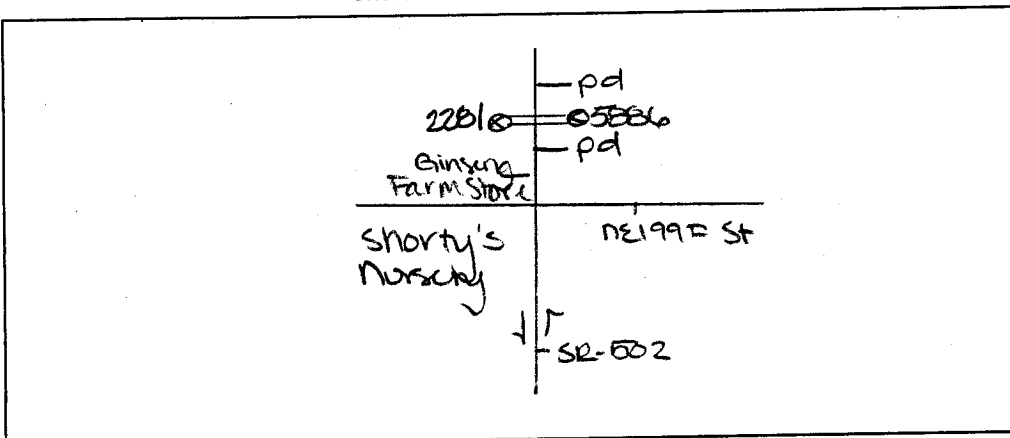 pd
2281 5886
pd
Ginseng
Farm Store
Shorty's
Nursery
NE 199th St
SR-502